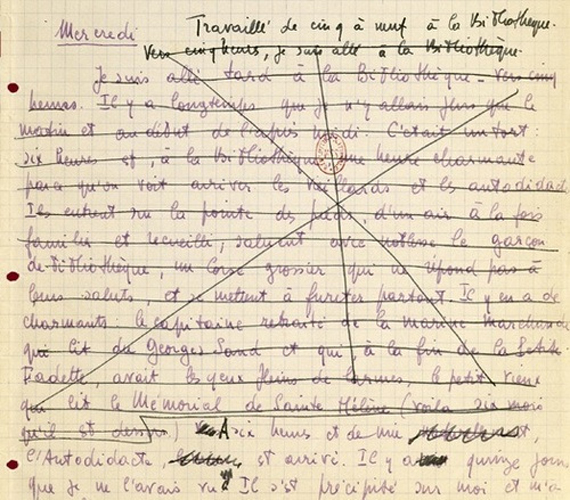 Mercredi Travaillé de cinq à neuf à la Bibliothèque.
Vers cinq heures, je suis allé à la Bibliothèque.
Je suis allé tard à la Bibliothèque - vers cinq
heures. Il y a longtemps que je n'y allais plus que le
matin et au début de l'après midi. C'était un tort :
six heures est, à la Bibliothèque une heure charmante
parce qu'on voit arriver les vieillards et les autodidactes
Ils entrent sur la pointe des pieds, d'un air à la fois
familier et recueilli, saluent avec noblesse le garçon
de Bibliothèque, un Corse grossier qui ne répond pas à
leurs saluts, et se mettent à fureter partout. Il y en a de
charmants : le capitaine retraité de la marine marchande
qui lit du Georges Sand et qui, à la fin de la Petite
Fadette, avait les yeux pleins de larmes, le petit vieux
qui lit le Mémorial de Sainte Hélène (voilà six mois
qu'il est dessus) A six heures et demie
l'Autodidacte, est arrivé. Il y a quinze jours
que je ne l'avais vu Il s'est précipité sur moi et m'a